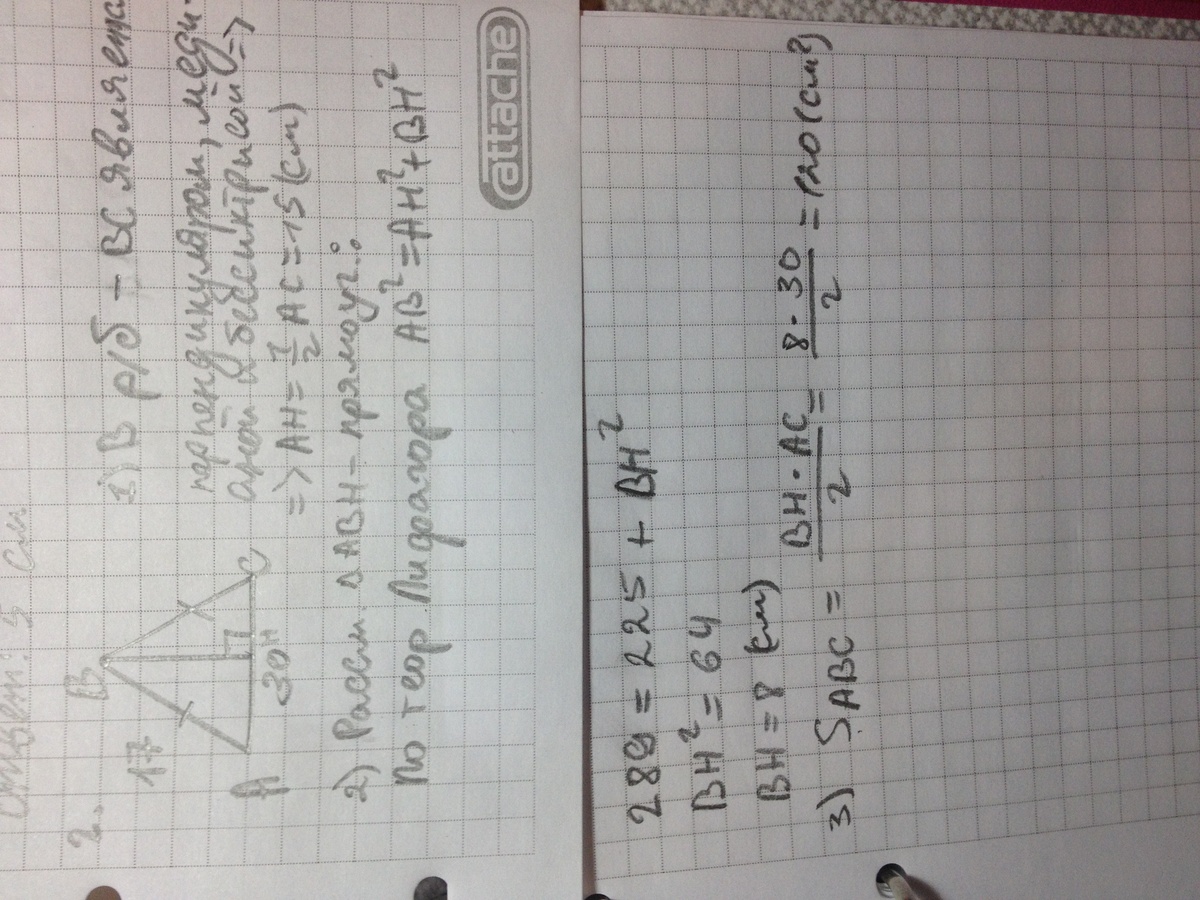 Ответ: 5 см
2.
B
17
A
30
H
C
1) В р/б - ВС являетса
перпендикуляром, меди-
аной и бессиктрисой =>
=> AH = 1/2 AC = 15 (см)
2) Рассм. △ABH - прямоуг.:
По теор. Пифагора AB² = AH² + BH²
attache
289 = 225 + BH²
BH² = 64
BH = 8 (см)
3) S ABC = BH · AC / 2 = 8 · 30 / 2 = 120 (см²)